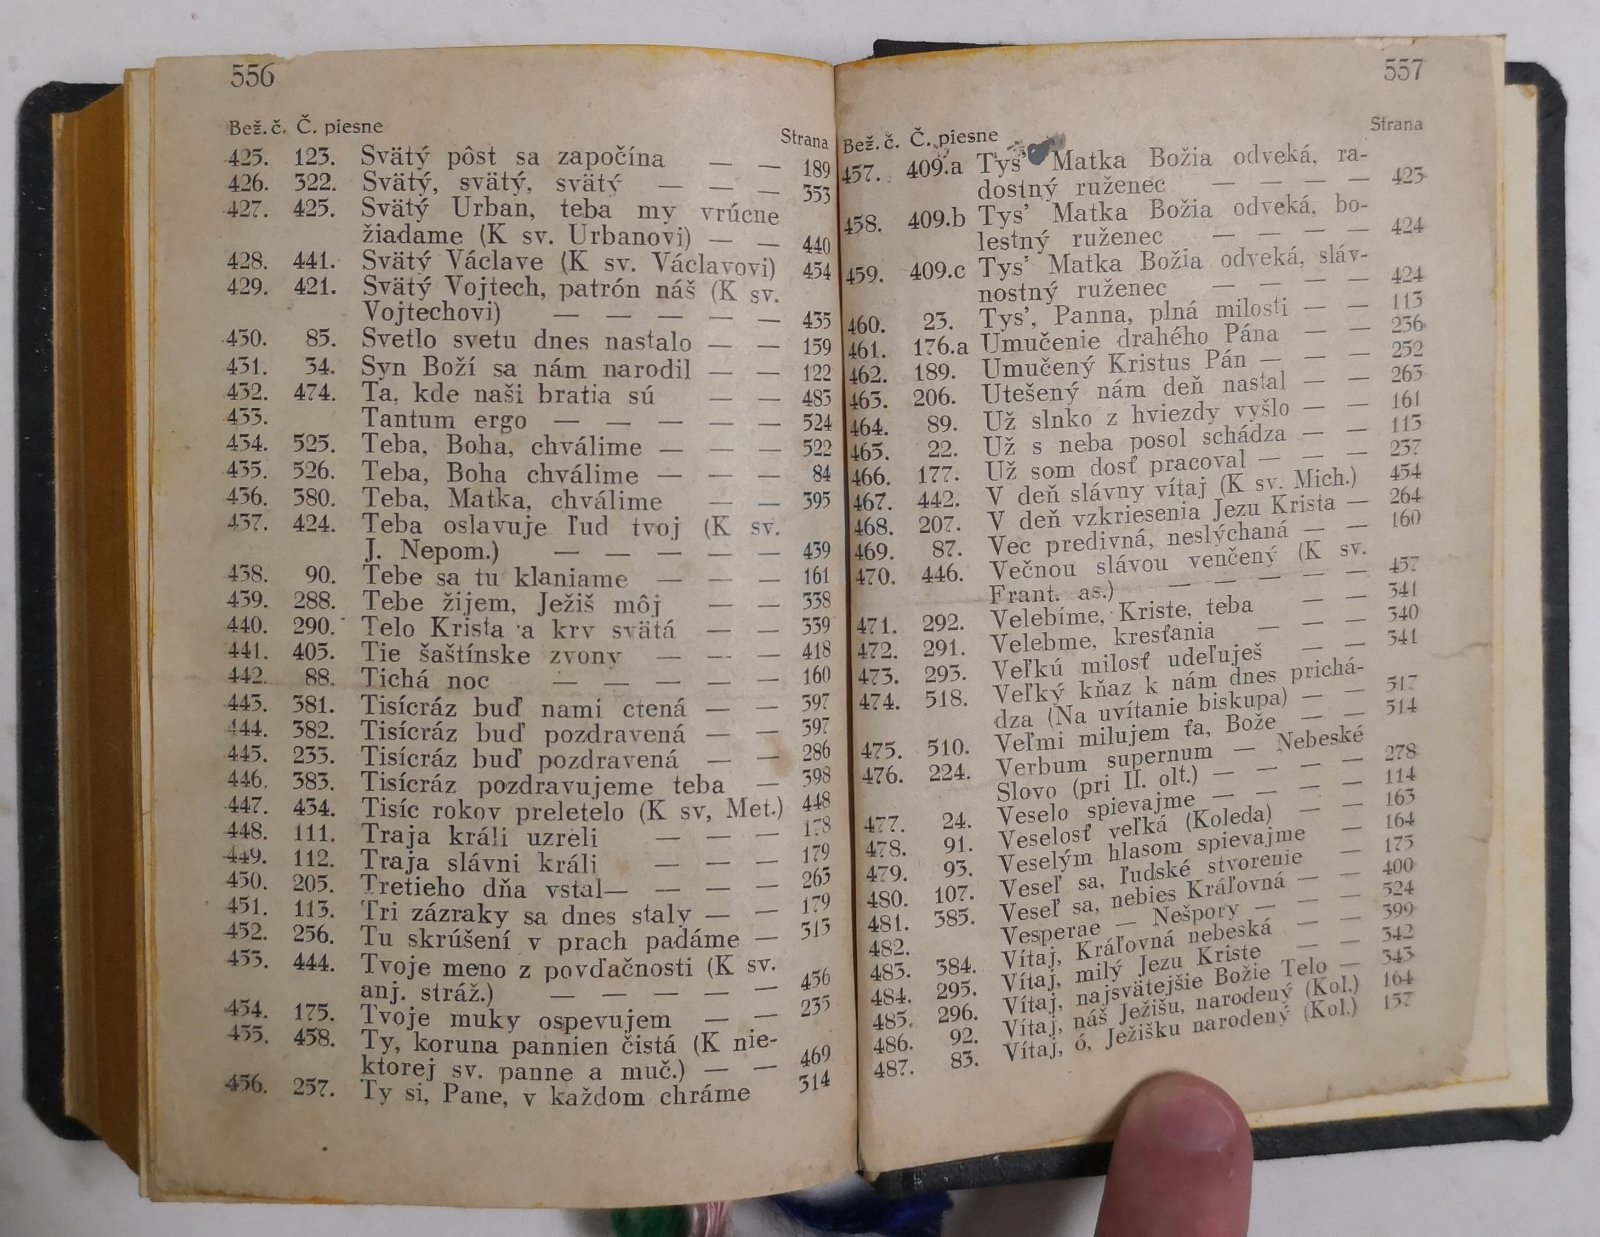 556
Bež. č. Č. piesne Strana
425. 123. Svätý pôst sa započína — — 189
426. 322. Svätý, svätý, svätý — — — 353
427. 425. Svätý Urban, teba my vrúcne
žiadame (K sv. Urbanovi) — — 440
428. 441. Svätý Václave (K sv. Václavovi) 454
429. 421. Svätý Vojtech, patrón náš (K sv.
Vojtechovi) — — — — — 435
430. 85. Svetlo svetu dnes nastalo — — 159
431. 34. Syn Boží sa nám narodil — — 122
432. 474. Ta, kde naši bratia sú — — 483
433. Tantum ergo — — — — — 524
434. 525. Teba, Boha, chválime — — — 522
435. 526. Teba, Boha chválime — — — 84
436. 380. Teba, Matka, chválime — — 395
437. 424. Teba oslavuje ľud tvoj (K sv.
J. Nepom.) — — — — — 439
438. 90. Tebe sa tu klaniame — — — 161
439. 288. Tebe žijem, Ježiš môj — — 338
440. 290. Telo Krista a krv svätá — — 339
441. 405. Tie šaštínske zvony — — — 418
442. 88. Tichá noc — — — — — 160
443. 381. Tisícráz buď nami ctená — — 397
444. 382. Tisícráz buď pozdravená — — 397
445. 233. Tisícráz buď pozdravená — — 286
446. 383. Tisícráz pozdravujeme teba — 398
447. 434. Tisíc rokov preletelo (K sv, Met.) 448
448. 111. Traja králi uzreli — — — 178
449. 112. Traja slávni králi — — — 179
450. 205. Tretieho dňa vstal— — — — 263
451. 113. Tri zázraky sa dnes staly — — 179
452. 256. Tu skrúšení v prach padáme — 313
453. 444. Tvoje meno z povďačnosti (K sv.
anj. stráž.) — — — — — 456
454. 175. Tvoje muky ospevujem — — 235
455. 458. Ty, koruna pannien čistá (K nie-
ktorej sv. panne a muč.) — — 469
456. 257. Ty si, Pane, v každom chráme 314
557
Bež. č. Č. piesne Strana
457. 409.a Tys’ Matka Božia odveká, ra-
dostný ruženec — — — — 423
458. 409.b Tys’ Matka Božia odveká, bo-
lestný ruženec — — — — 424
459. 409.c Tys’ Matka Božia odveká, sláv-
nostný ruženec — — — — 424
460. 23. Tys’, Panna, plná milosti — — 113
461. 176.a Umučenie drahého Pána — — 236
462. 189. Umučený Kristus Pán — — — 252
463. 206. Utešený nám deň nastal — — 263
464. 89. Už slnko z hviezdy vyšlo — — 161
465. 22. Už s neba posol schádza — — 113
466. 177. Už som dosť pracoval — — — 237
467. 442. V deň slávny vítaj (K sv. Mich.) 454
468. 207. V deň vzkriesenia Jezu Krista — 264
469. 87. Vec predivná, neslýchaná — — 160
470. 446. Večnou slávou venčený (K sv.
Frant. as.) — — — — — 457
471. 292. Velebíme, Kriste, teba — — 341
472. 291. Velebme, kresťania — — — 340
473. 293. Veľkú milosť udeľuješ — — 341
474. 518. Veľký kňaz k nám dnes prichá-
dza (Na uvítanie biskupa) — — 517
475. 510. Veľmi milujem ťa, Bože — — 514
476. 224. Verbum supernum — Nebeské
Slovo (pri II. olt.) — — — — 278
477. 24. Veselo spievajme — — — — 114
478. 91. Veselosť veľká (Koleda) — — 163
479. 93. Veselým hlasom spievajme — 164
480. 107. Veseľ sa, ľudské stvorenie — 175
481. 385. Veseľ sa, nebies Kráľovná — — 400
482. Vesperae — Nešpory — — — 524
483. 384. Vítaj, Kráľovná nebeská — — 399
484. 295. Vítaj, milý Jezu Kriste — — 342
485. 296. Vítaj, najsvätejšie Božie Telo — 343
486. 92. Vítaj, náš Ježišu, narodený (Kol.) 164
487. 83. Vítaj, ó, Ježišku narodený (Kol.) 157